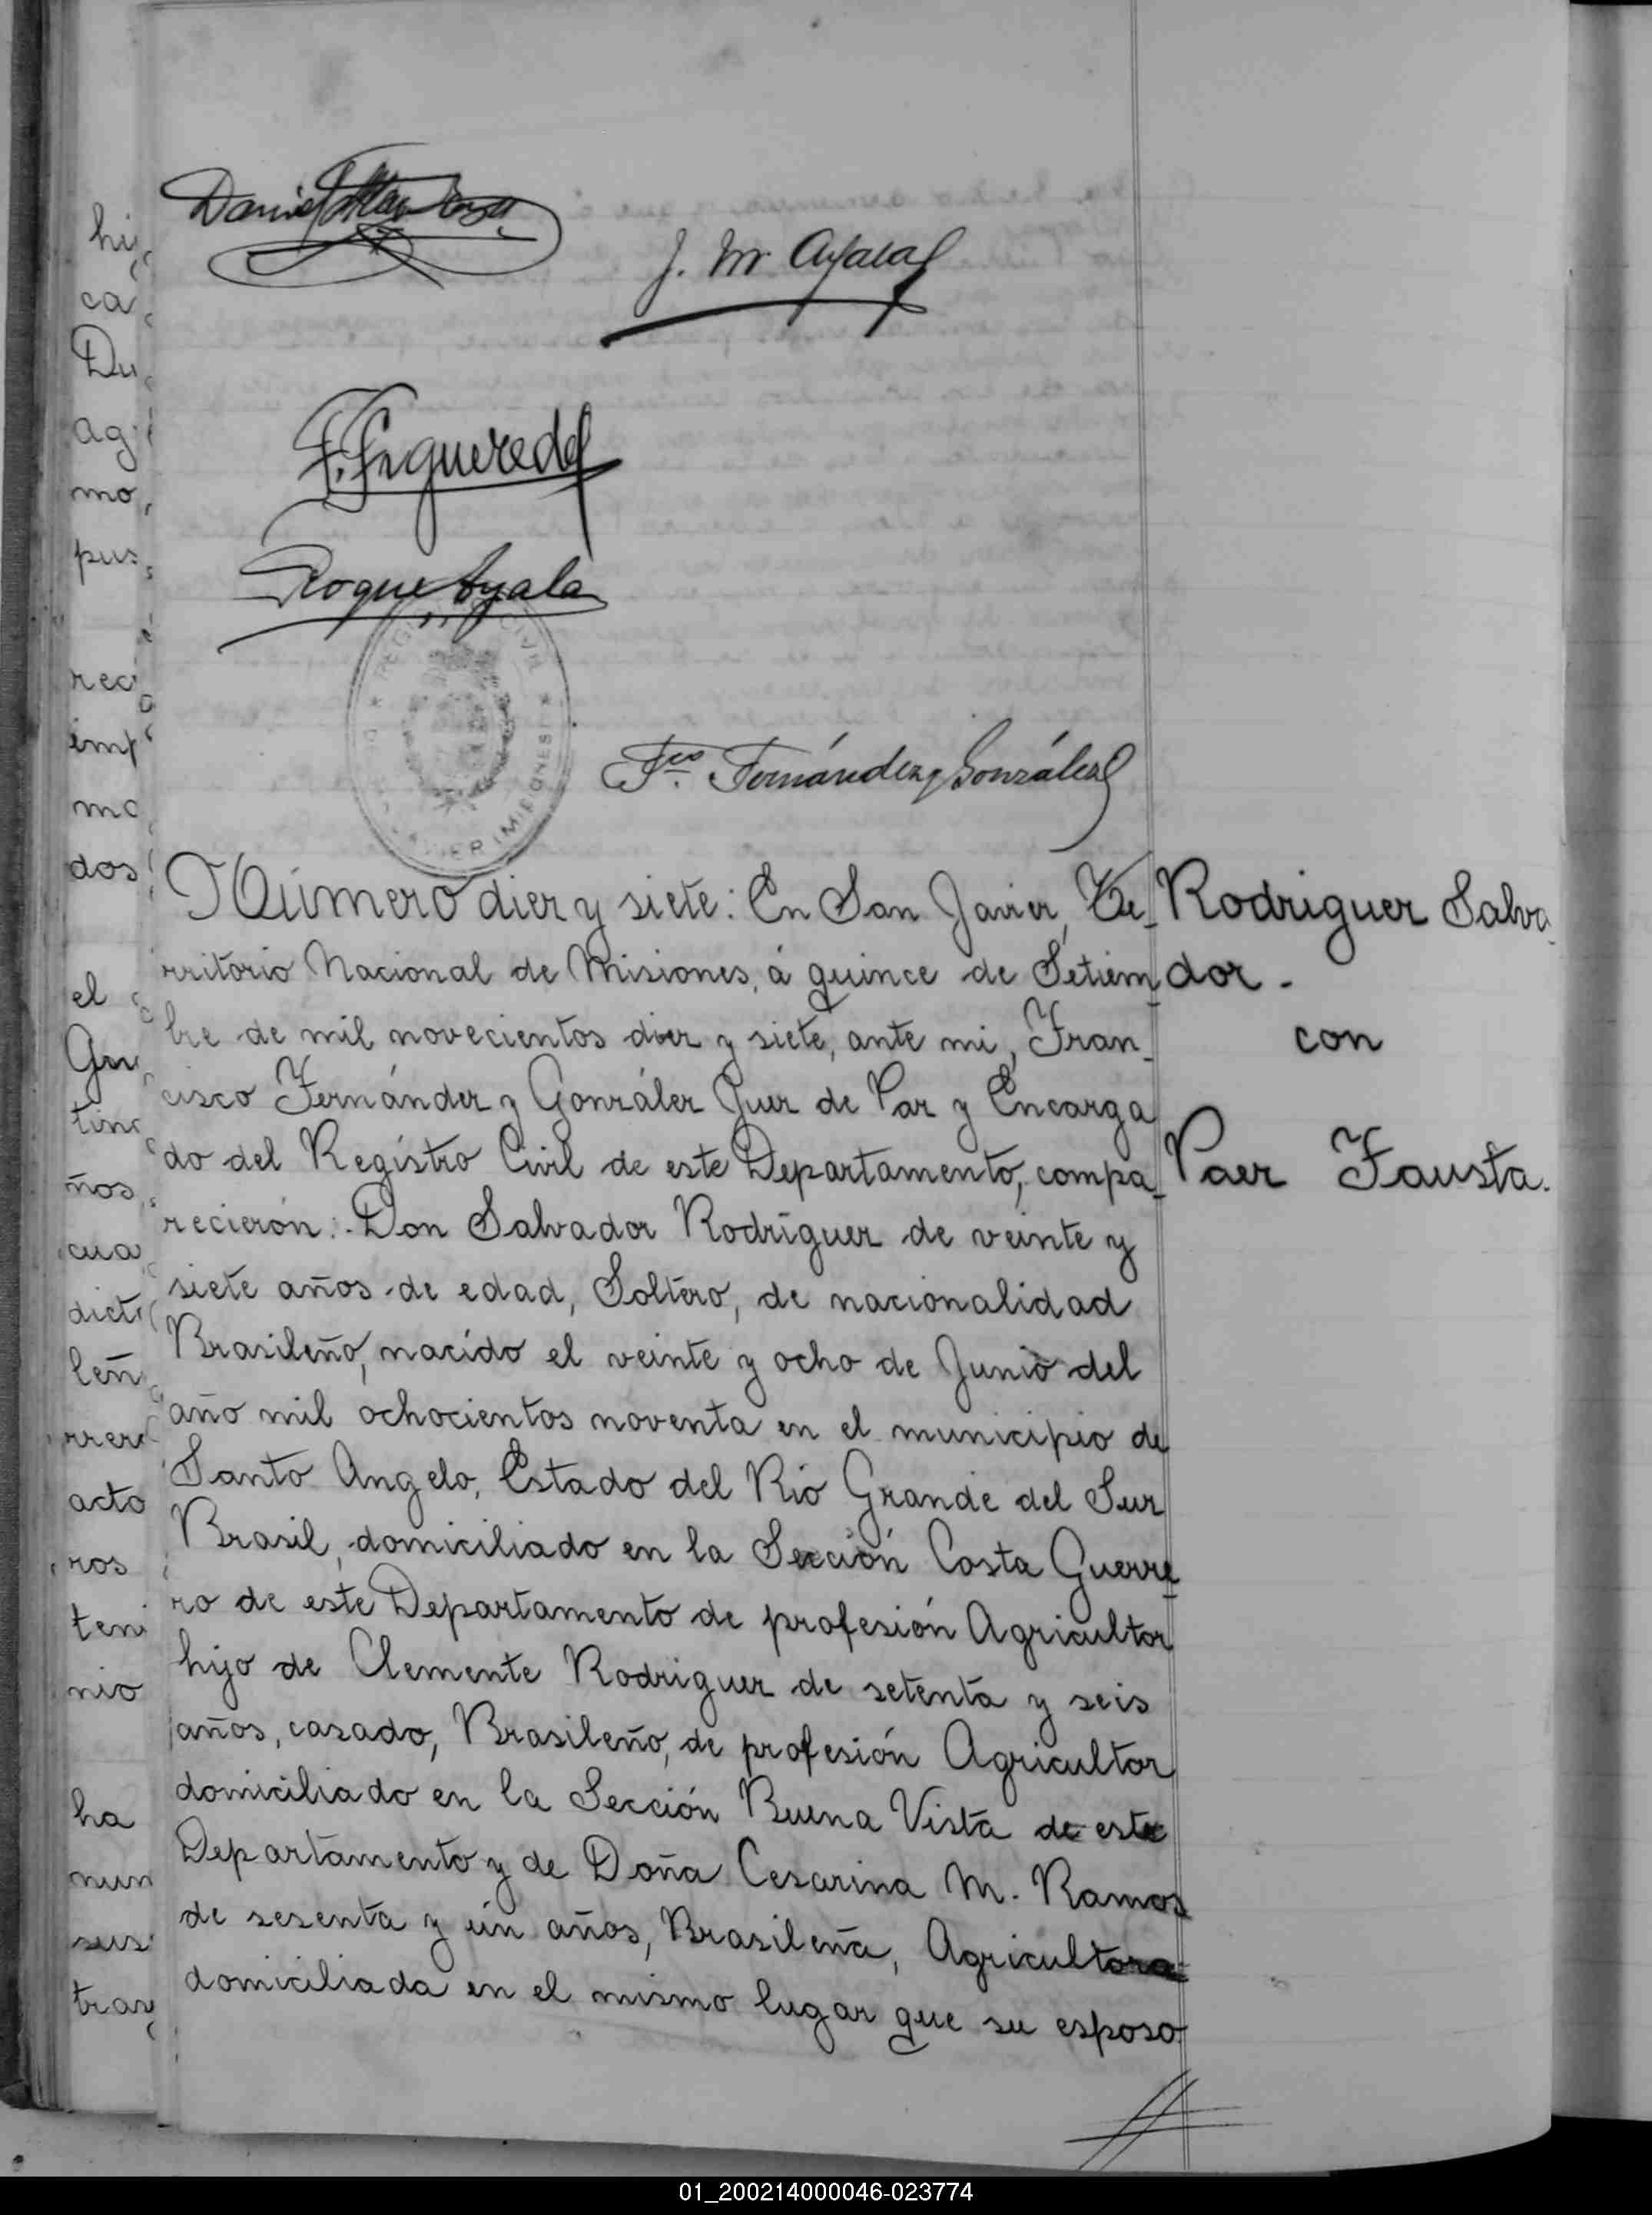 Daniel
J. M. Ayala
F. Figueredo
Roque Ayala
REGISTRO CIVIL
JAVIER (MISIONES)
Fco. Fernández y González
Número diez y siete: En San Javier, Te-
rritorio Nacional de Misiones, á quince de Setiem-
bre de mil novecientos diez y siete, ante mi, Fran-
cisco Fernández y González Juez de Paz y Encarga-
do del Registro Civil de este Departamento, compa-
recieron: Don Salvador Rodríguez de veinte y
siete años de edad, Soltero, de nacionalidad
Brasileño, nacido el veinte y ocho de Junio del
año mil ochocientos noventa en el municipio de
Santo Angelo, Estado del Rio Grande del Sur
Brasil, domiciliado en la Sección Costa Guerre-
ro de este Departamento de profesión Agricultor
hijo de Clemente Rodriguez de setenta y seis
años, casado, Brasileño, de profesión Agricultor
domiciliado en la Sección Buena Vista de este
Departamento y de Doña Cesarina M. Ramos
de sesenta y un años, Brasileña, Agricultora
domiciliada en el mismo lugar que su esposo
Rodriguez Salva-
dor.-
con
Paez Fausta.
hi
ca
Du
ag
mo,
pus
rec
imp
mo
dos
el
Gon
tino
ños
cua
dict
leñ
rrer
acto
ros
teni
nio
ha
nun
sus
tray
01_200214000046-023774